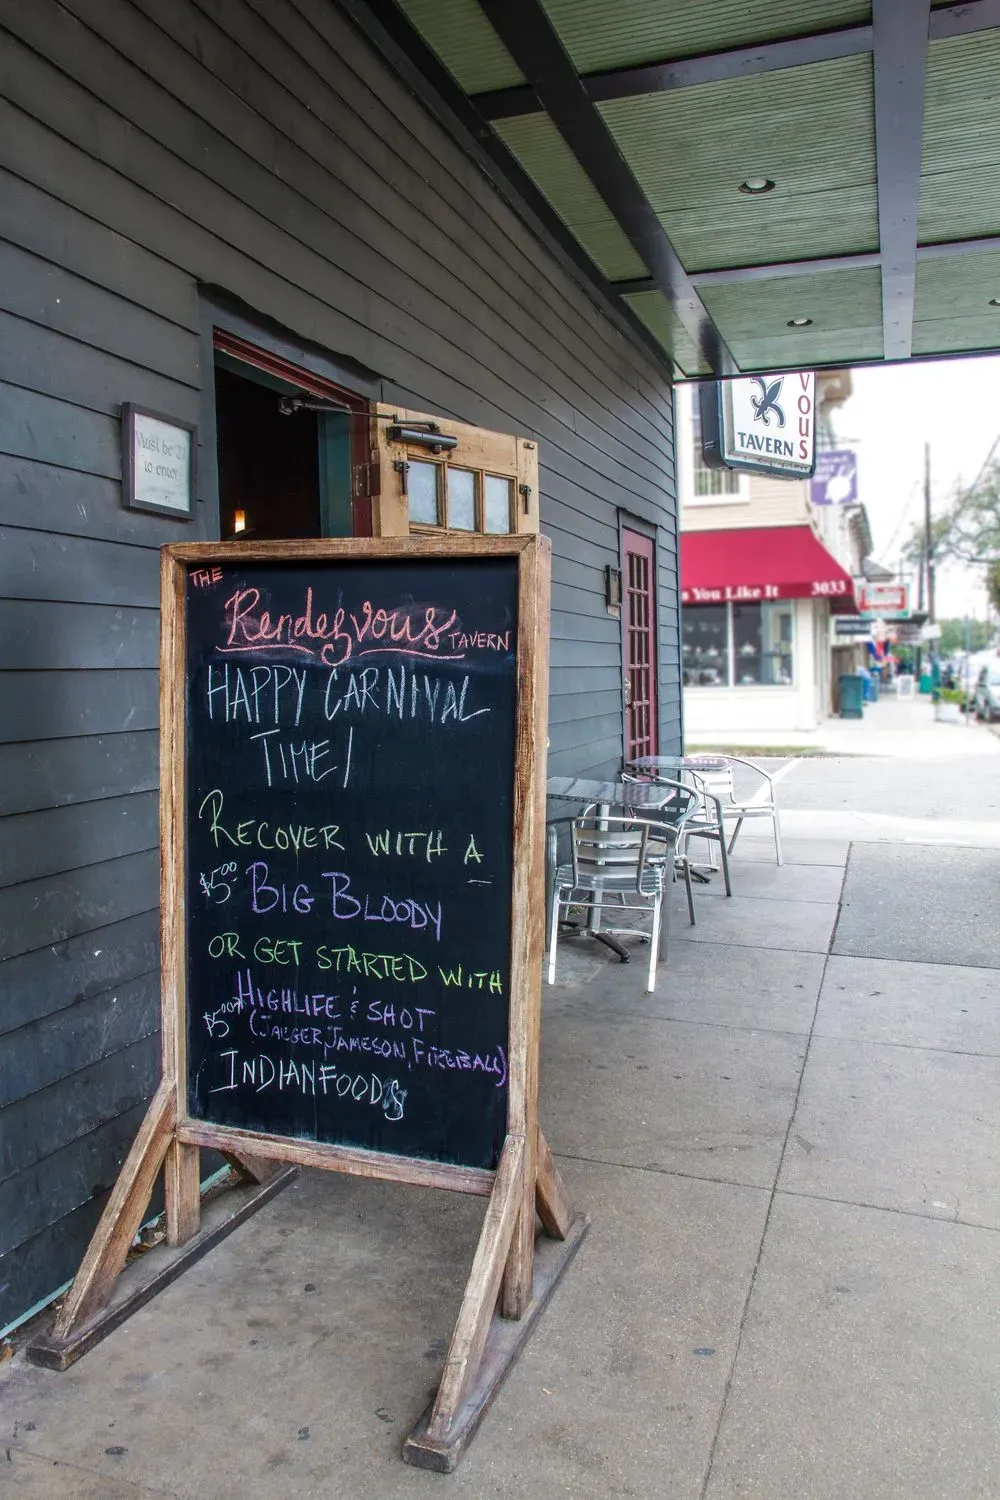 Must be 21
to enter
THE
Rendezvous TAVERN
HAPPY CARNIVAL
TIME!
RECOVER WITH A
$5.00 BIG BLOODY
OR GET STARTED WITH
HIGHLIFE & SHOT
$5.00 (JAEGER, JAMESON, FIREBALL)
INDIAN FOODS
VOUS
TAVERN
s You Like It 3033